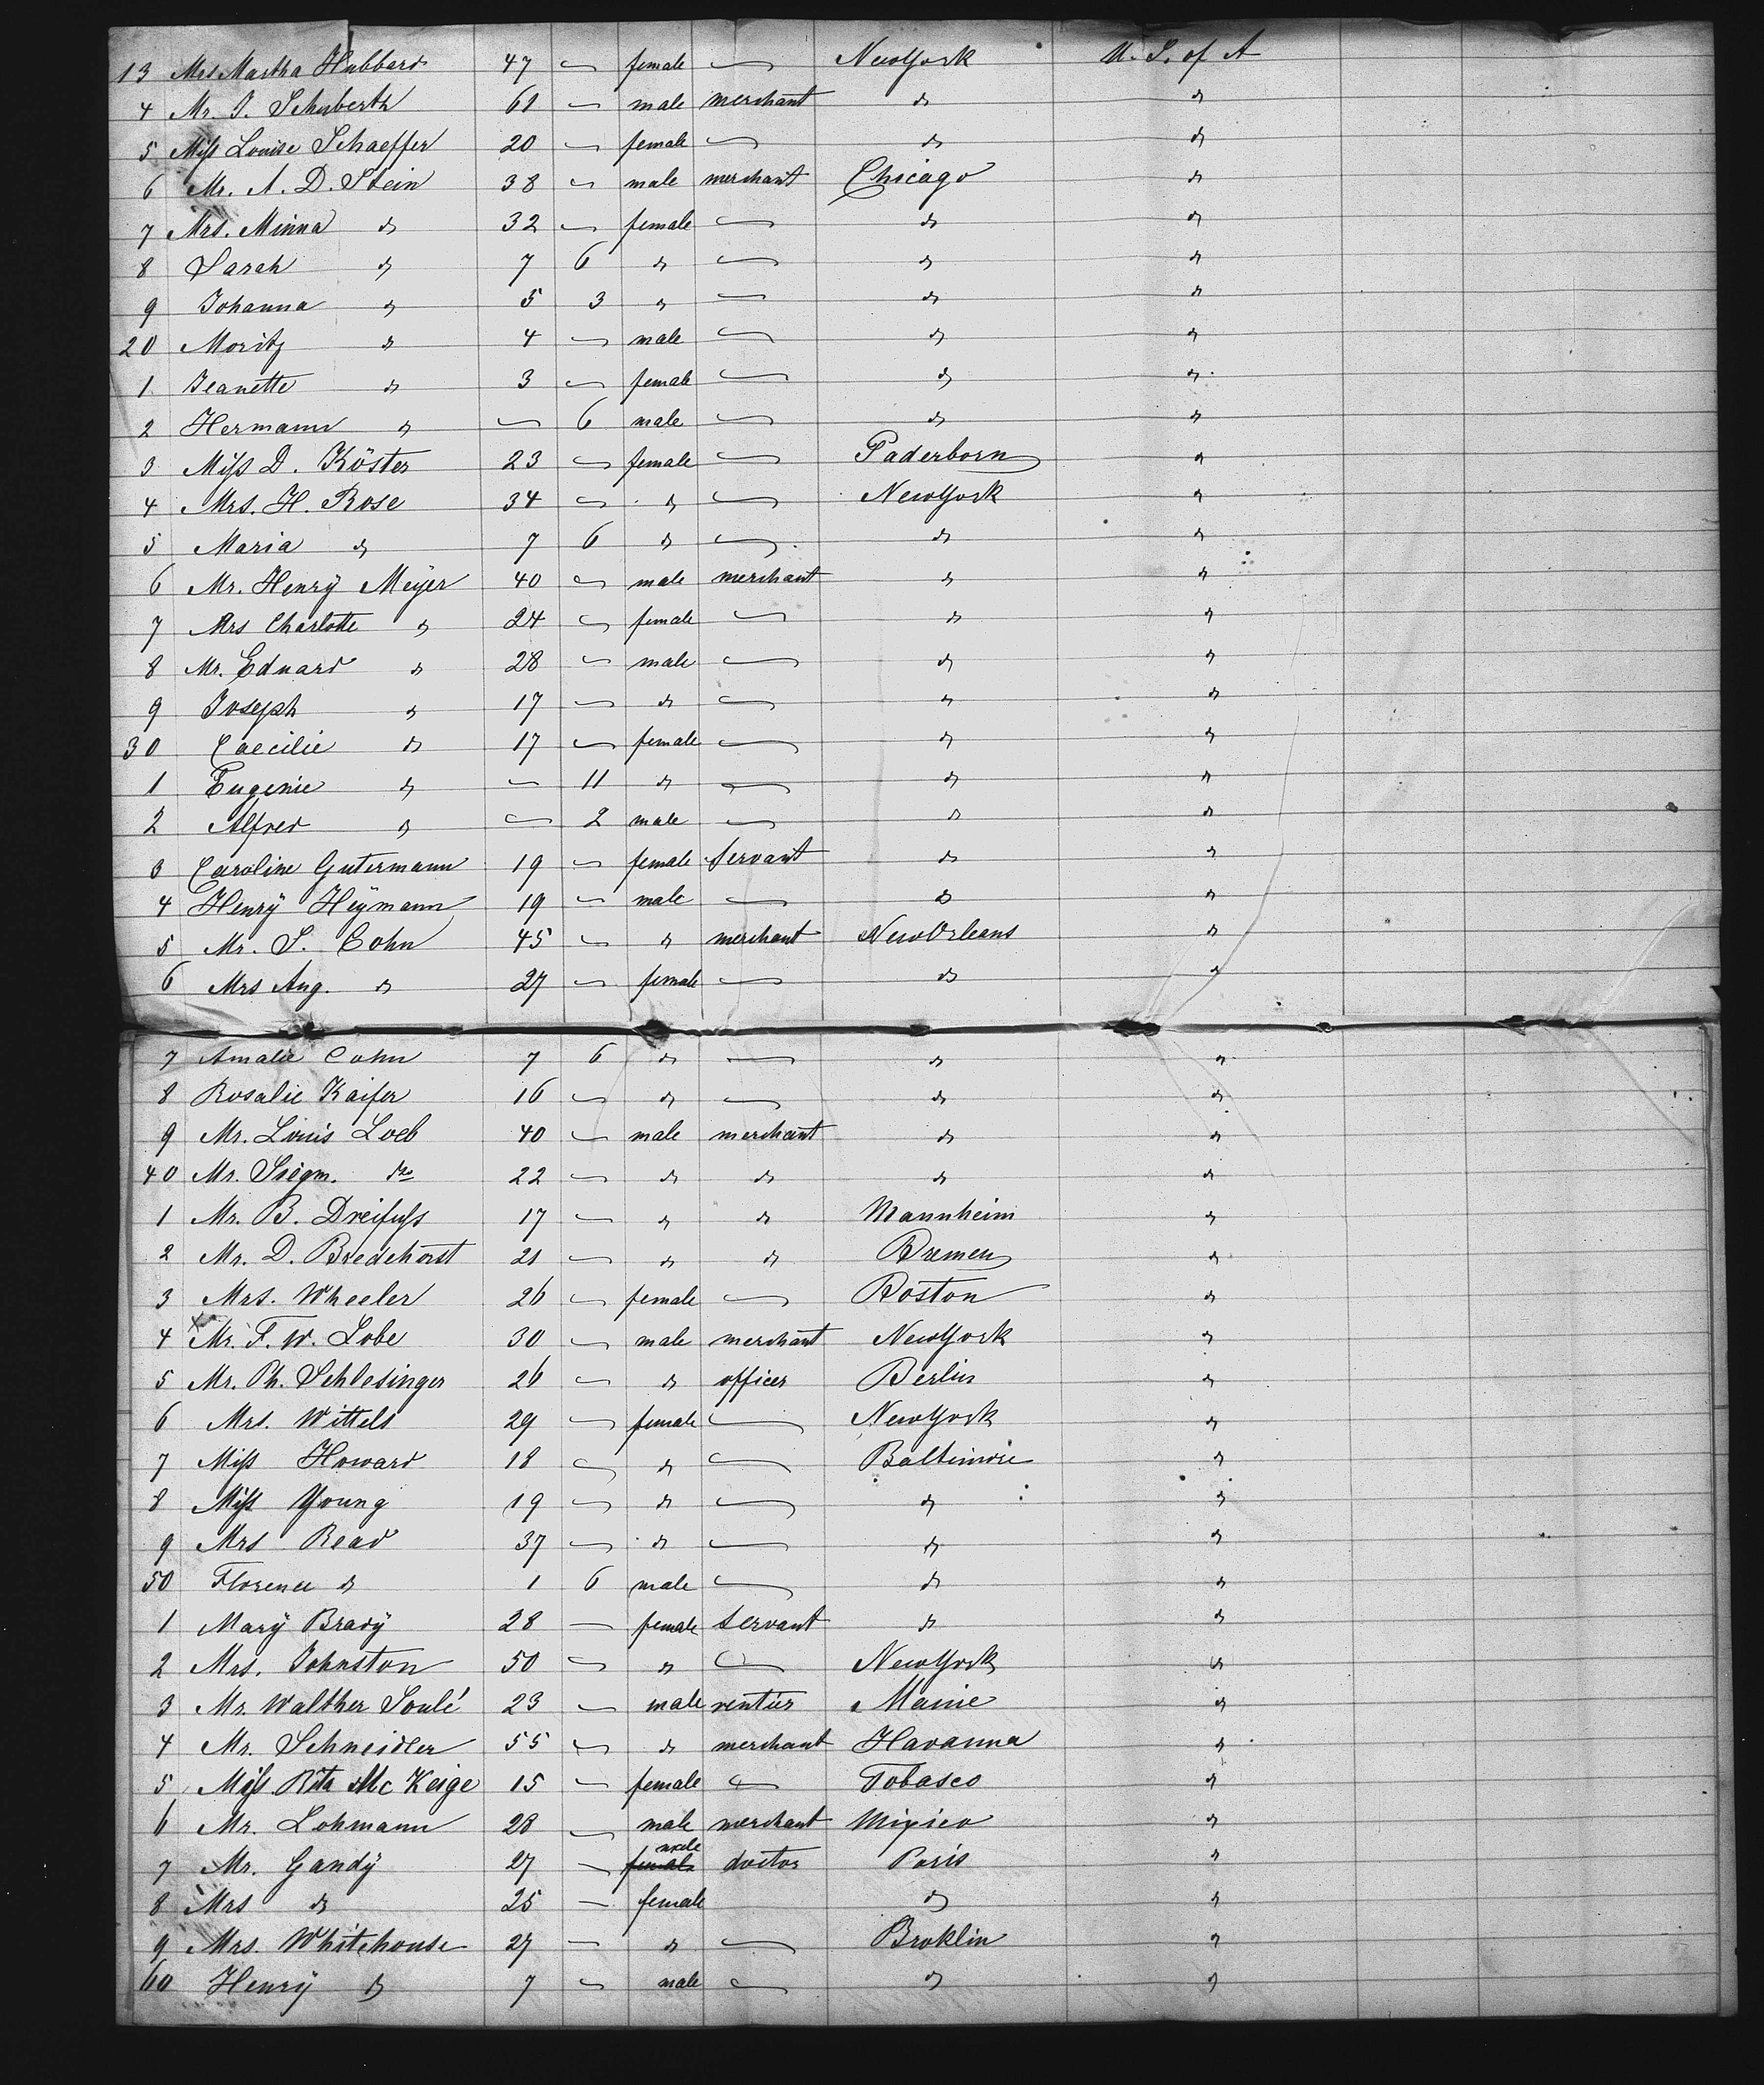 13 Mrs Martha Hubbard 47 — female — New York U. S. of A
4 Mr. J. Schuberth 61 — male merchant do do
5 Miss Louise Schaeffer 20 — female — do do
6 Mr. A. D. Stein 38 — male merchant Chicago do
7 Mrs. Minna do 32 — female — do do
8 Sarah do 7 6 do — do do
9 Johanna do 5 3 do — do do
20 Moritz do 4 — male — do do
1 Jeanette do 3 — female — do do
2 Hermann do — 6 male — do do
3 Miss D. Köster 23 — female — Paderborn do
4 Mrs. H. Rose 34 — do — New York do
5 Maria do 7 6 do — do do
6 Mr. Henrÿ Meÿer 40 — male merchant do do
7 Mrs Charlotte do 24 — female — do do
8 Mr. Eduard do 28 — male — do do
9 Joseph do 17 — do — do do
30 Caecilie do 17 — female — do do
1 Eugenie do — 11 do — do do
2 Alfred do — 2 male — do do
3 Caroline Gutermann 19 — female servant do do
4 Henrÿ Heÿmann 19 — male — do do
5 Mr. S. Cohn 45 — do merchant New Orleans do
6 Mrs Aug. do 27 — female — do do
7 Amalie Cohn 7 6 do — do do
8 Rosalie Kaifer 16 — do — do do
9 Mr. Louis Loeb 40 — male merchant do do
40 Mr. Siegm. do 22 — do do do do
1 Mr. B. Dreifuss 17 — do do Mannheim do
2 Mr. D. Bredehorst 21 — do do Bremen do
3 Mrs. Wheeler 26 — female — Boston do
4 Mr. F. W. Lobe 30 — male merchant New York do
5 Mr. Ph. Schlesinger 26 — do officer Berlin do
6 Mrs. Wittels 29 — female — New York do
7 Miss Howard 18 — do — Baltimore do
8 Miss Young 19 — do — do do
9 Mrs Read 37 — do — do do
50 Florence do 1 6 male — do do
1 Marÿ Bradÿ 28 — female servant do do
2 Mrs. Johnston 50 — do — New York do
3 Mr. Walther Soulé 23 — male rentier Maine do
4 Mr. Schneidler 55 — do merchant Havanna do
5 Miss Rita Mc Keige 15 — female — Tobasco do
6 Mr. Lohmann 28 — male merchant Mixico do
7 Mr. Gandÿ 27 — female male doctor Paris do
8 Mrs do 25 — female do do
9 Mrs. Whitehouse 27 — do — Broklin do
60 Henrÿ do 7 — male — do do